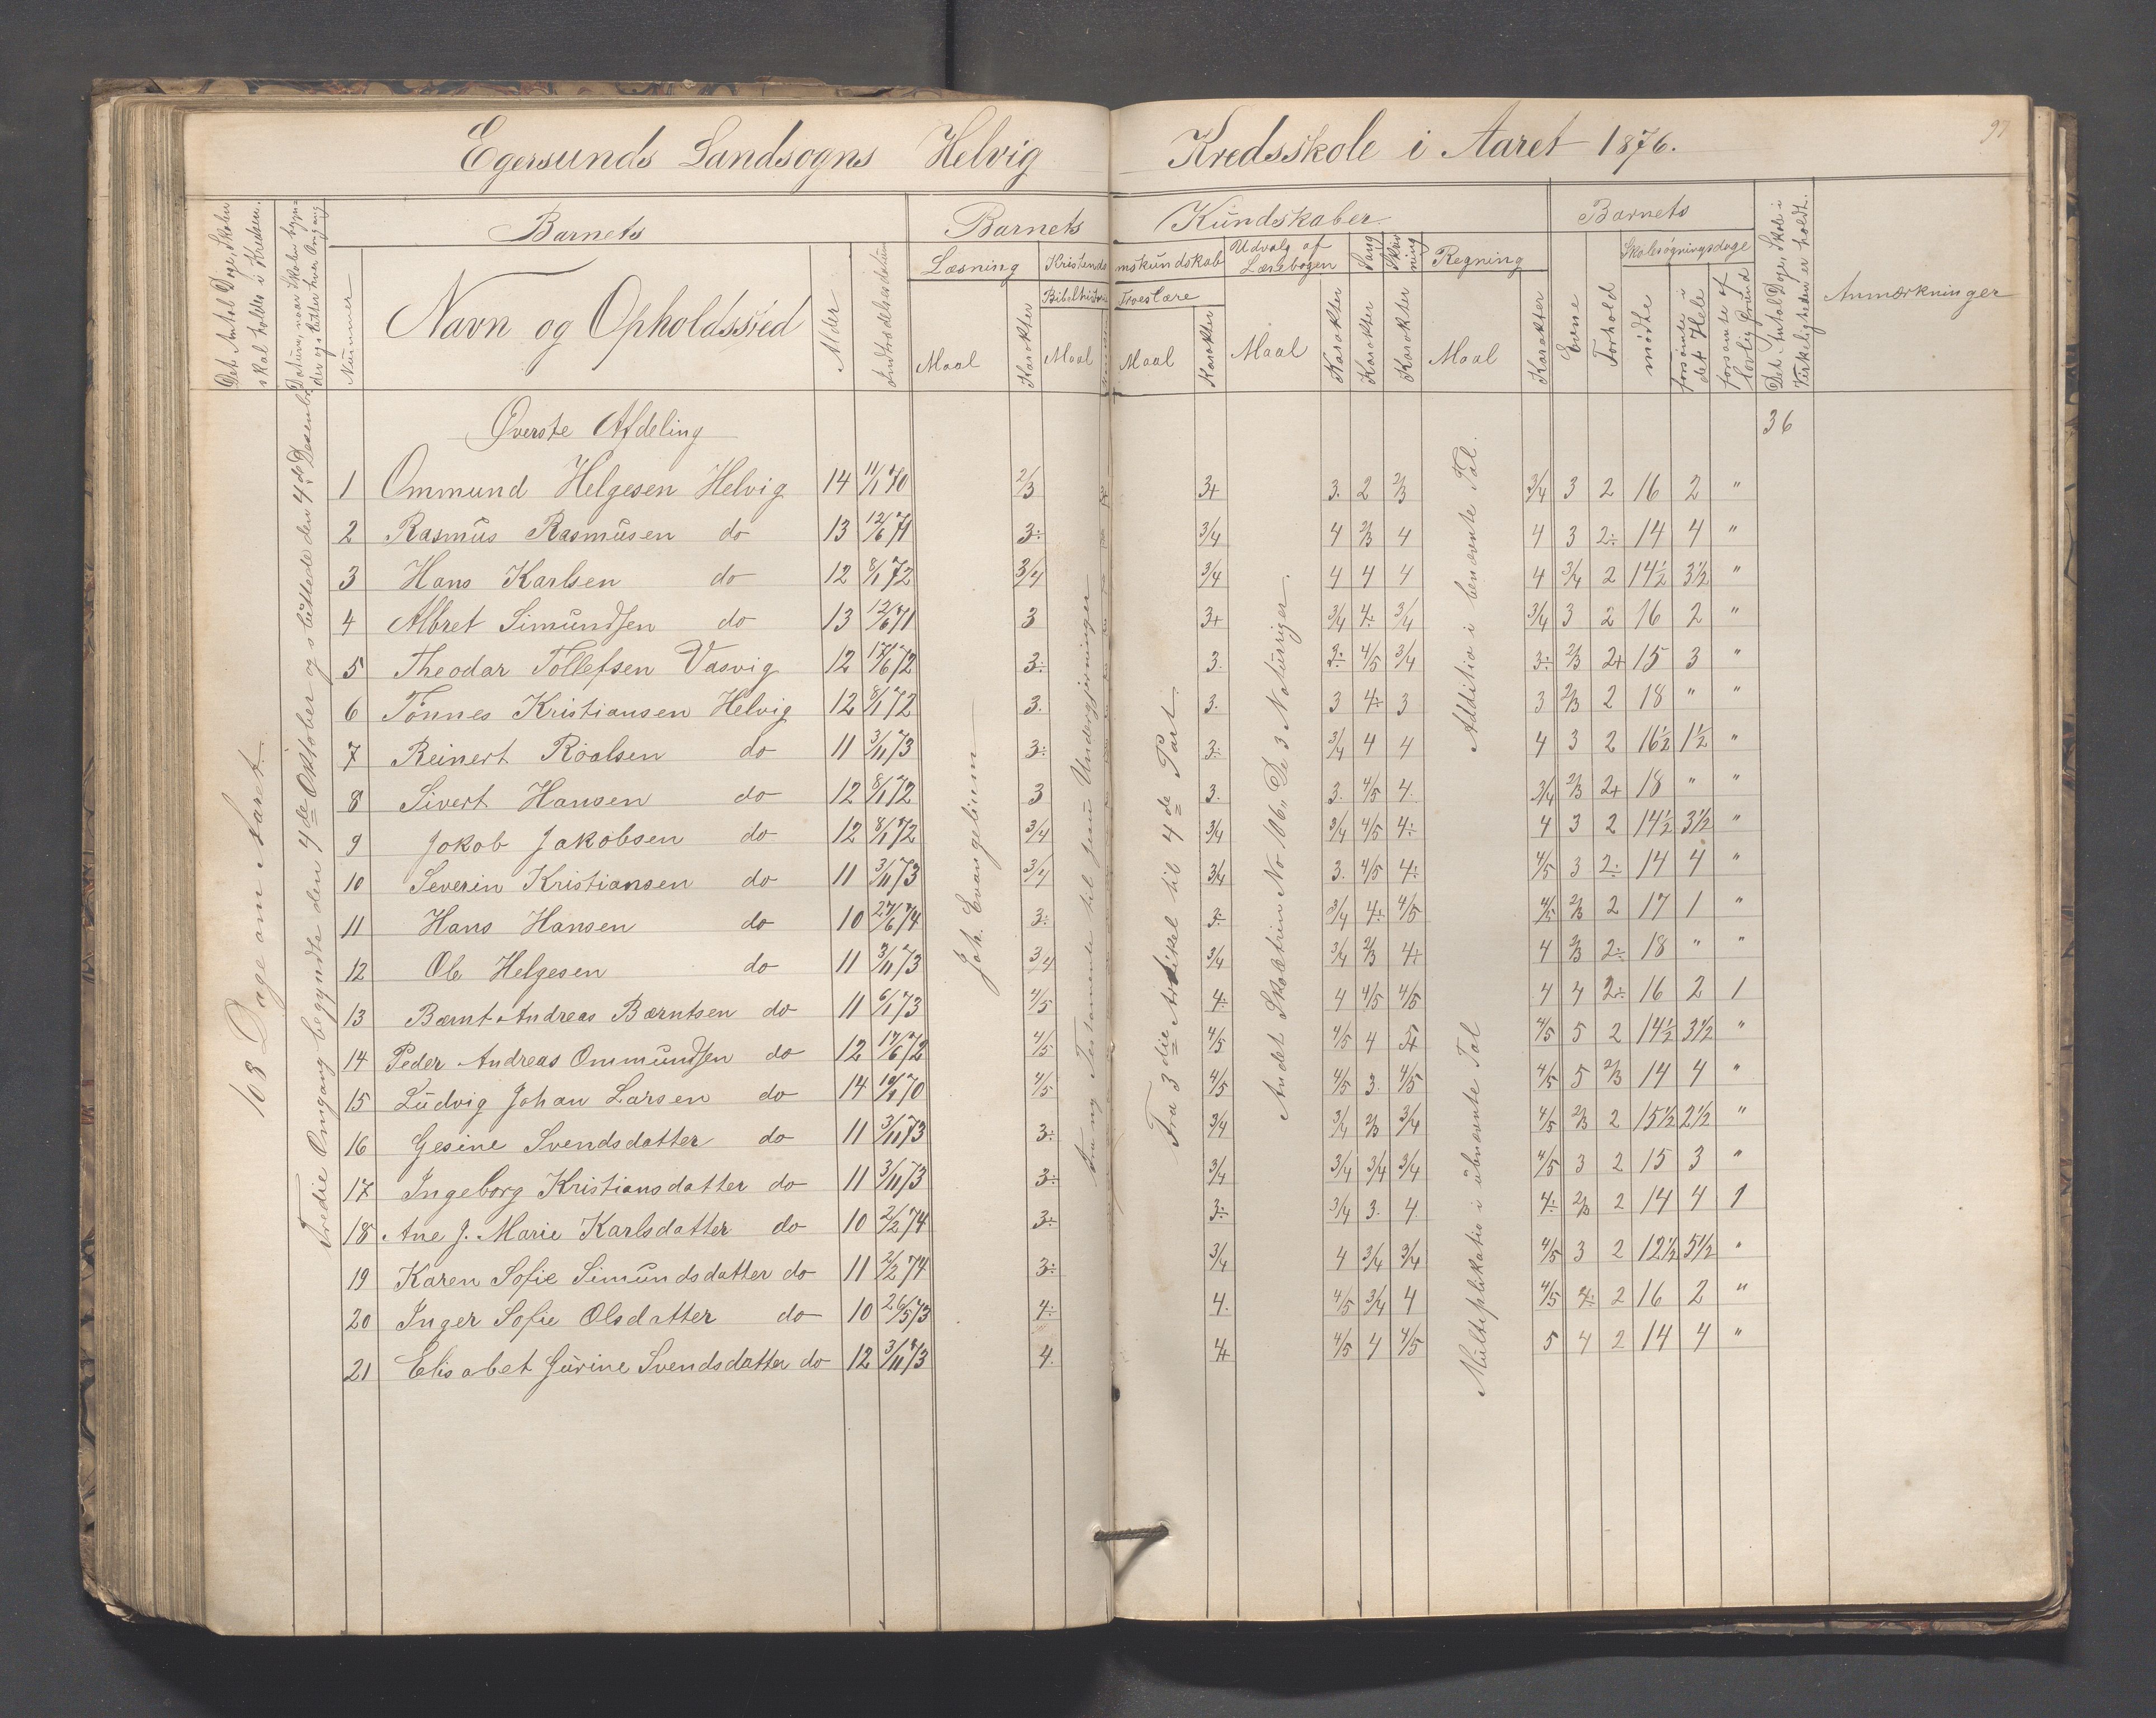 Egersunds Landsogns Helvig Kredsskole i Aaret 1876.
97
Det Antal Dage, Skolen skal holdes i Kredsen.
Datum, naar Skolen begynder og slutter hver Omgang
Nummer
Barnets
Navn og Opholdssted
Alder
Indtrædelsesdatum
Barnets Kundskaber
Læsning
Maal
Karakter
Kristendomskundskab
Bibelhistorie
Maal
Troeslære
Maal
Karakter
Udvalg af Læsebogen
Maal
Karakter
Sang
Karakter
Skrivning
Karakter
Regning
Maal
Karakter
Barnets
Evne
Forhold
Skolesøgningsdage
mødte
forsømte i det Hele
forsømte af lovlig Grund
Det Antal Dage, Skole i Virkeligheden er holdt.
Anmærkninger
Øverste Afdeling
36
108 Dage om Aaret.
Tredie Omgang begyndte den 4de Oktober og sluttede den 4de Desember
Joh. Evangelium
Fra 3die Artikel til 4de Part.
Andet Skoletrin No 106 "De 3 Naturriger.
Additio i benævnte Tal.
Multiplikatio i ubnævnte Tal
1 Ommund Helgesen Helvig 14 11/1 70 2/3 3+ 3. 2 2/3 3/4 3 2 16 2 "
2 Rasmus Rasmusen do 13 12/6 71 3÷ 3/4 4 2/3 4 4 3 2÷ 14 4 "
3 Hans Karlsen do 12 8/1 72 3/4 3/4 4 4 4 4 3/4 2 14½ 3½ "
4 Albret Simundsen do 13 12/6 71 3 3+ 3/4 4÷ 3/4 3/4 3 2 16 2 "
5 Theodar Tollefsen Vasvig 12 17/6 72 3÷ 3. 3÷ 4/5 3/4 3÷ 2/3 2+ 15 3 "
6 Tønnes Kristiansen Helvig 12 8/1 72 3. 3. 3 4÷ 3 3 2/3 2 18 " "
7 Reinert Roalsen do 11 3/11 73 3÷ 3÷ 3/4 4 4 4 3 2 16½ 1½ "
8 Sivert Hansen do 12 8/1 72 3 3. 3. 4/5 4. 3/4 2/3 2+ 18 " "
9 Jokob Jakobsen do 12 8/1 72 3/4 3/4 3/4 4/5 4÷ 4 3 2 14½ 3½ "
10 Severin Kristiansen do 11 3/11 73 3/4 3/4 3. 4/5 4÷ 4/5 3 2÷ 14 4 "
11 Hans Hansen do 10 27/6 74 3÷ 3÷ 3/4 4÷ 4/5 4/5 2/3 2 17 1 "
12 Ole Helgesen do 11 3/11 73 3/4 3/4 3/4 2/3 4÷ 4 2/3 2÷ 18 " "
13 Bærnt Andreas Bærntsen do 11 6/1 73 4/5 4÷ 4 4/5 4/5 4 4 2÷ 16 2 1
14 Peder Andreas Ommundsen do 12 17/6 72 4/5 4/5 4/5 4 5+ 4/5 5 2 14½ 3½ "
15 Ludvig Johan Larsen do 14 10/1 70 4/5 4/5 4/5 3. 4/5 4/5 5 2/3 14 4 "
16 Gesine Svendsdatter do 11 3/11 73 3÷ 3/4 3/4 2/3 3/4 4/5 2/3 2 15½ 2½ "
17 Ingeborg Kristiansdatter do 11 3/11 73 3÷ 3/4 3/4 3/4 3/4 4/5 3 2 15 3 "
18 Ane J. Marie Karlsdatter do 10 2/2 74 3÷ 3÷ 3/4 3. 4. 4÷ 2/3 2 14 4 1
19 Karen Sofie Simundsdatter do 11 2/2 74 3÷ 3/4 4 3/4 3/4 4/5 3 2 12½ 5½ "
20 Inger Sofie Olsdatter do 10 26/5 73 4÷ 4. 4/5 3/4 4 4/5 4÷ 2 16 2 "
21 Elisabet Gurine Svendsdatter do 12 3/11 73 4. 4+ 4/5 4 4/5 5 4 2 14 4 "